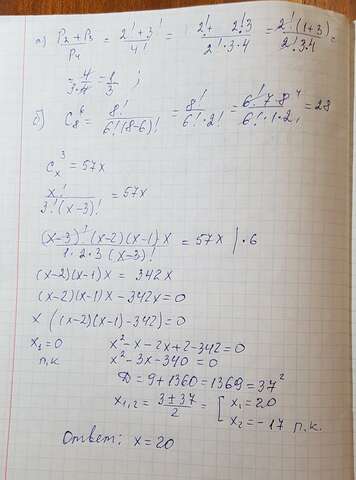 а) (P₂ + P₃)/P₄ = (2! + 3!)/4! = (2! + 2!3)/(2!·3·4) = (2!(1+3))/(2!3·4) =
= 4/(3·4) = 1/3 ;
б) C₈⁶ = 8!/(6!(8-6)!) = 8!/(6!·2!) = (6!·7·8⁴)/(6!·1·2₁) = 28
Cₓ³ = 57x
x!/(3!(x-3)!) = 57x
((x-3)!(x-2)(x-1)x)/(1·2·3(x-3)!) = 57x |·6
(x-2)(x-1)x = 342x
(x-2)(x-1)x - 342x = 0
x((x-2)(x-1)-342) = 0
x₁ = 0 x² - x - 2x + 2 - 342 = 0
п.к x² - 3x - 340 = 0
D = 9 + 1360 = 1369 = 37²
x₁,₂ = (3 ± 37)/2 = [ x₁ = 20
x₂ = -17 п.к.
Ответ: x = 20